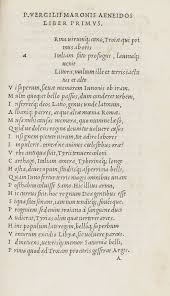 P. VERGILII MARONIS AENEIDOS
LIBER PRIMVS.
A Rma uirumq; cano, Troiæ qui pri
mus ab oris
Italiam fato profugus, Lauinaq;
uenit
Littora, multum ille et terris iacta
tus et alto
V i superum, sæuæ memorem Iunonis ob iram.
M ulta quoq; et bello passus, dum conderet urbem,
I nferretq; deos Latio, genus unde Latinum,
A lbaniq; patres, atq; altæ mœnia Romæ.
M usa mihi causas memora, quo numine læso,
Q uid ue dolens regina deum tot uoluere casus
I nsignem pietate uirum, tot adire labores
I mpulerit. tantæ ne animis cœlestibus iræ?
V rbs antiqua fuit, Tyrii tenuere coloni
C arthago, Italiam contra, Tyberinaq; longe
H ostia, diues opum, studiisq; asperrima belli,
Q uam Iuno fertur terris magis omnibus unam
P osthabita coluisse Samo. Hic illius arma,
H ic currus fuit. hoc regnum dea gentibus esse,
S i qua fata sinant, iam tum tenditq; fouetq;
P rogeniem sed enim Troiano a sanguine duci
A udierat, Tyrias olim quæ uerteret arces.
H inc populum late regem, belloq; superbum
V enturum excidio Libyæ, sic uoluere Parcas.
I d metuens, ueterisq; memor Saturnia belli,
P rima quod ad Troiam pro charis gesserat Argis.